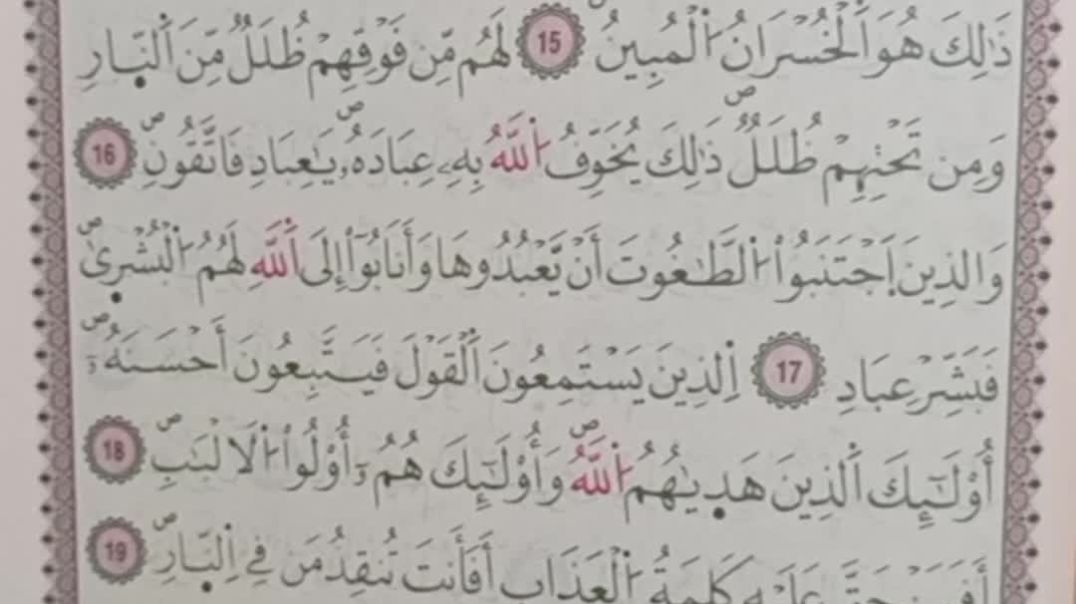 ذَٰلِكَ هُوَ اَ۬لْخُسْرَانُ اُ۬لْمُبِينُۖ 15 لَهُم مِّن فَوْقِهِمْ ظُلَلٞ مِّنَ اَ۬لنّ۪ارِ
وَمِن تَحْتِهِمْ ظُلَلٞۖ ذَٰلِكَ يُخَوِّفُ اُ۬للَّهُ بِهِۦ عِبَادَهُۥۖ يَٰعِبَادِ فَاتَّقُونِۖ 16
وَالذِينَ اَ۪جْتَنَبُواْ اُ۬لطَّٰغُوتَ أَنْ يَّعْبُدُوهَا وَأَنَابُوٓاْ إِلَى اَ۬للَّهِ لَهُمُ اُ۬لْبُشْر۪ىٰۖ
فَبَشِّرْ عِبَادِ 17 اِ۬لذِينَ يَسْتَمِعُونَ اَ۬لْقَوْلَ فَيَتَّبِعُونَ أَحْسَنَهُۥٓۖ
أُوْلَٰٓئِكَ اَ۬لذِينَ هَد۪يٰهُمُ اُ۬للَّهُۖ وَأُوْلَٰٓئِكَ هُمُۥٓ أُوْلُواْ اُ۬لَالْبَٰبِۖ 18
أَفَمَنْ حَقَّ عَلَيْهِ كَلِمَةُ اُ۬لْعَذَابِ أَفَأَنتَ تُنقِذُ مَن فِے اِ۬لنّ۪ارِۖ 19